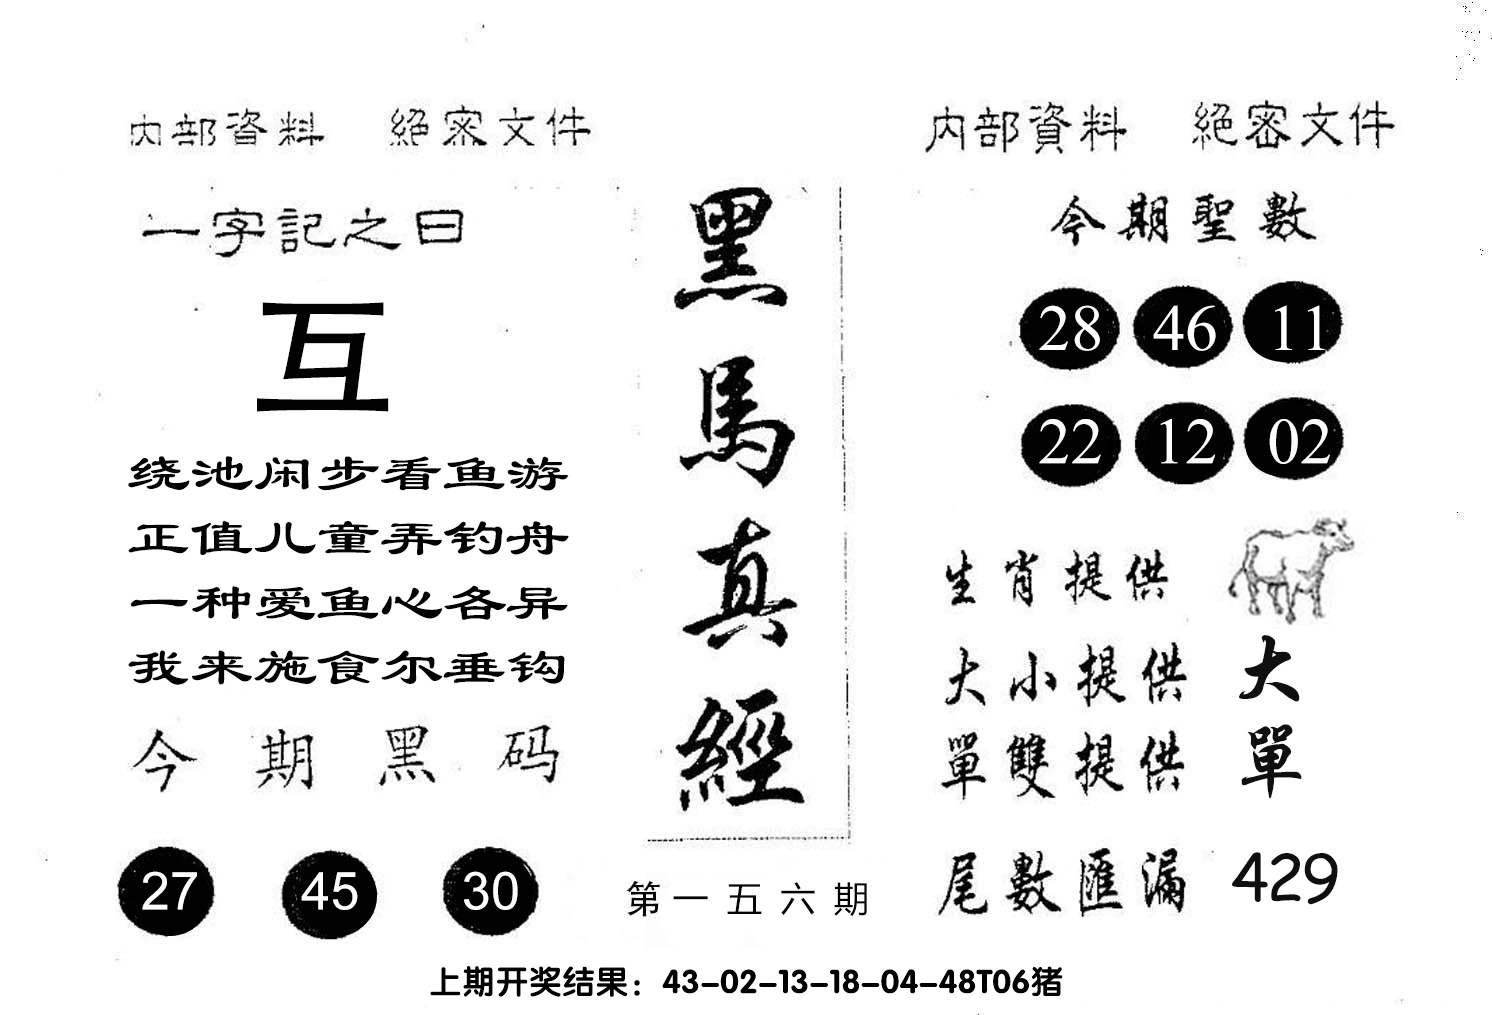 内部資料 絕密文件
一字記之曰
互
绕池闲步看鱼游
正值儿童弄钓舟
一种爱鱼心各异
我来施食尔垂钩
今期黑码
27 45 30
黑馬真經
第一五六期
内部資料 絕密文件
今期聖數
28 46 11
22 12 02
生肖提供
大小提供 大
單雙提供 單
尾數匯漏 429
上期开奖结果：43-02-13-18-04-48T06猪